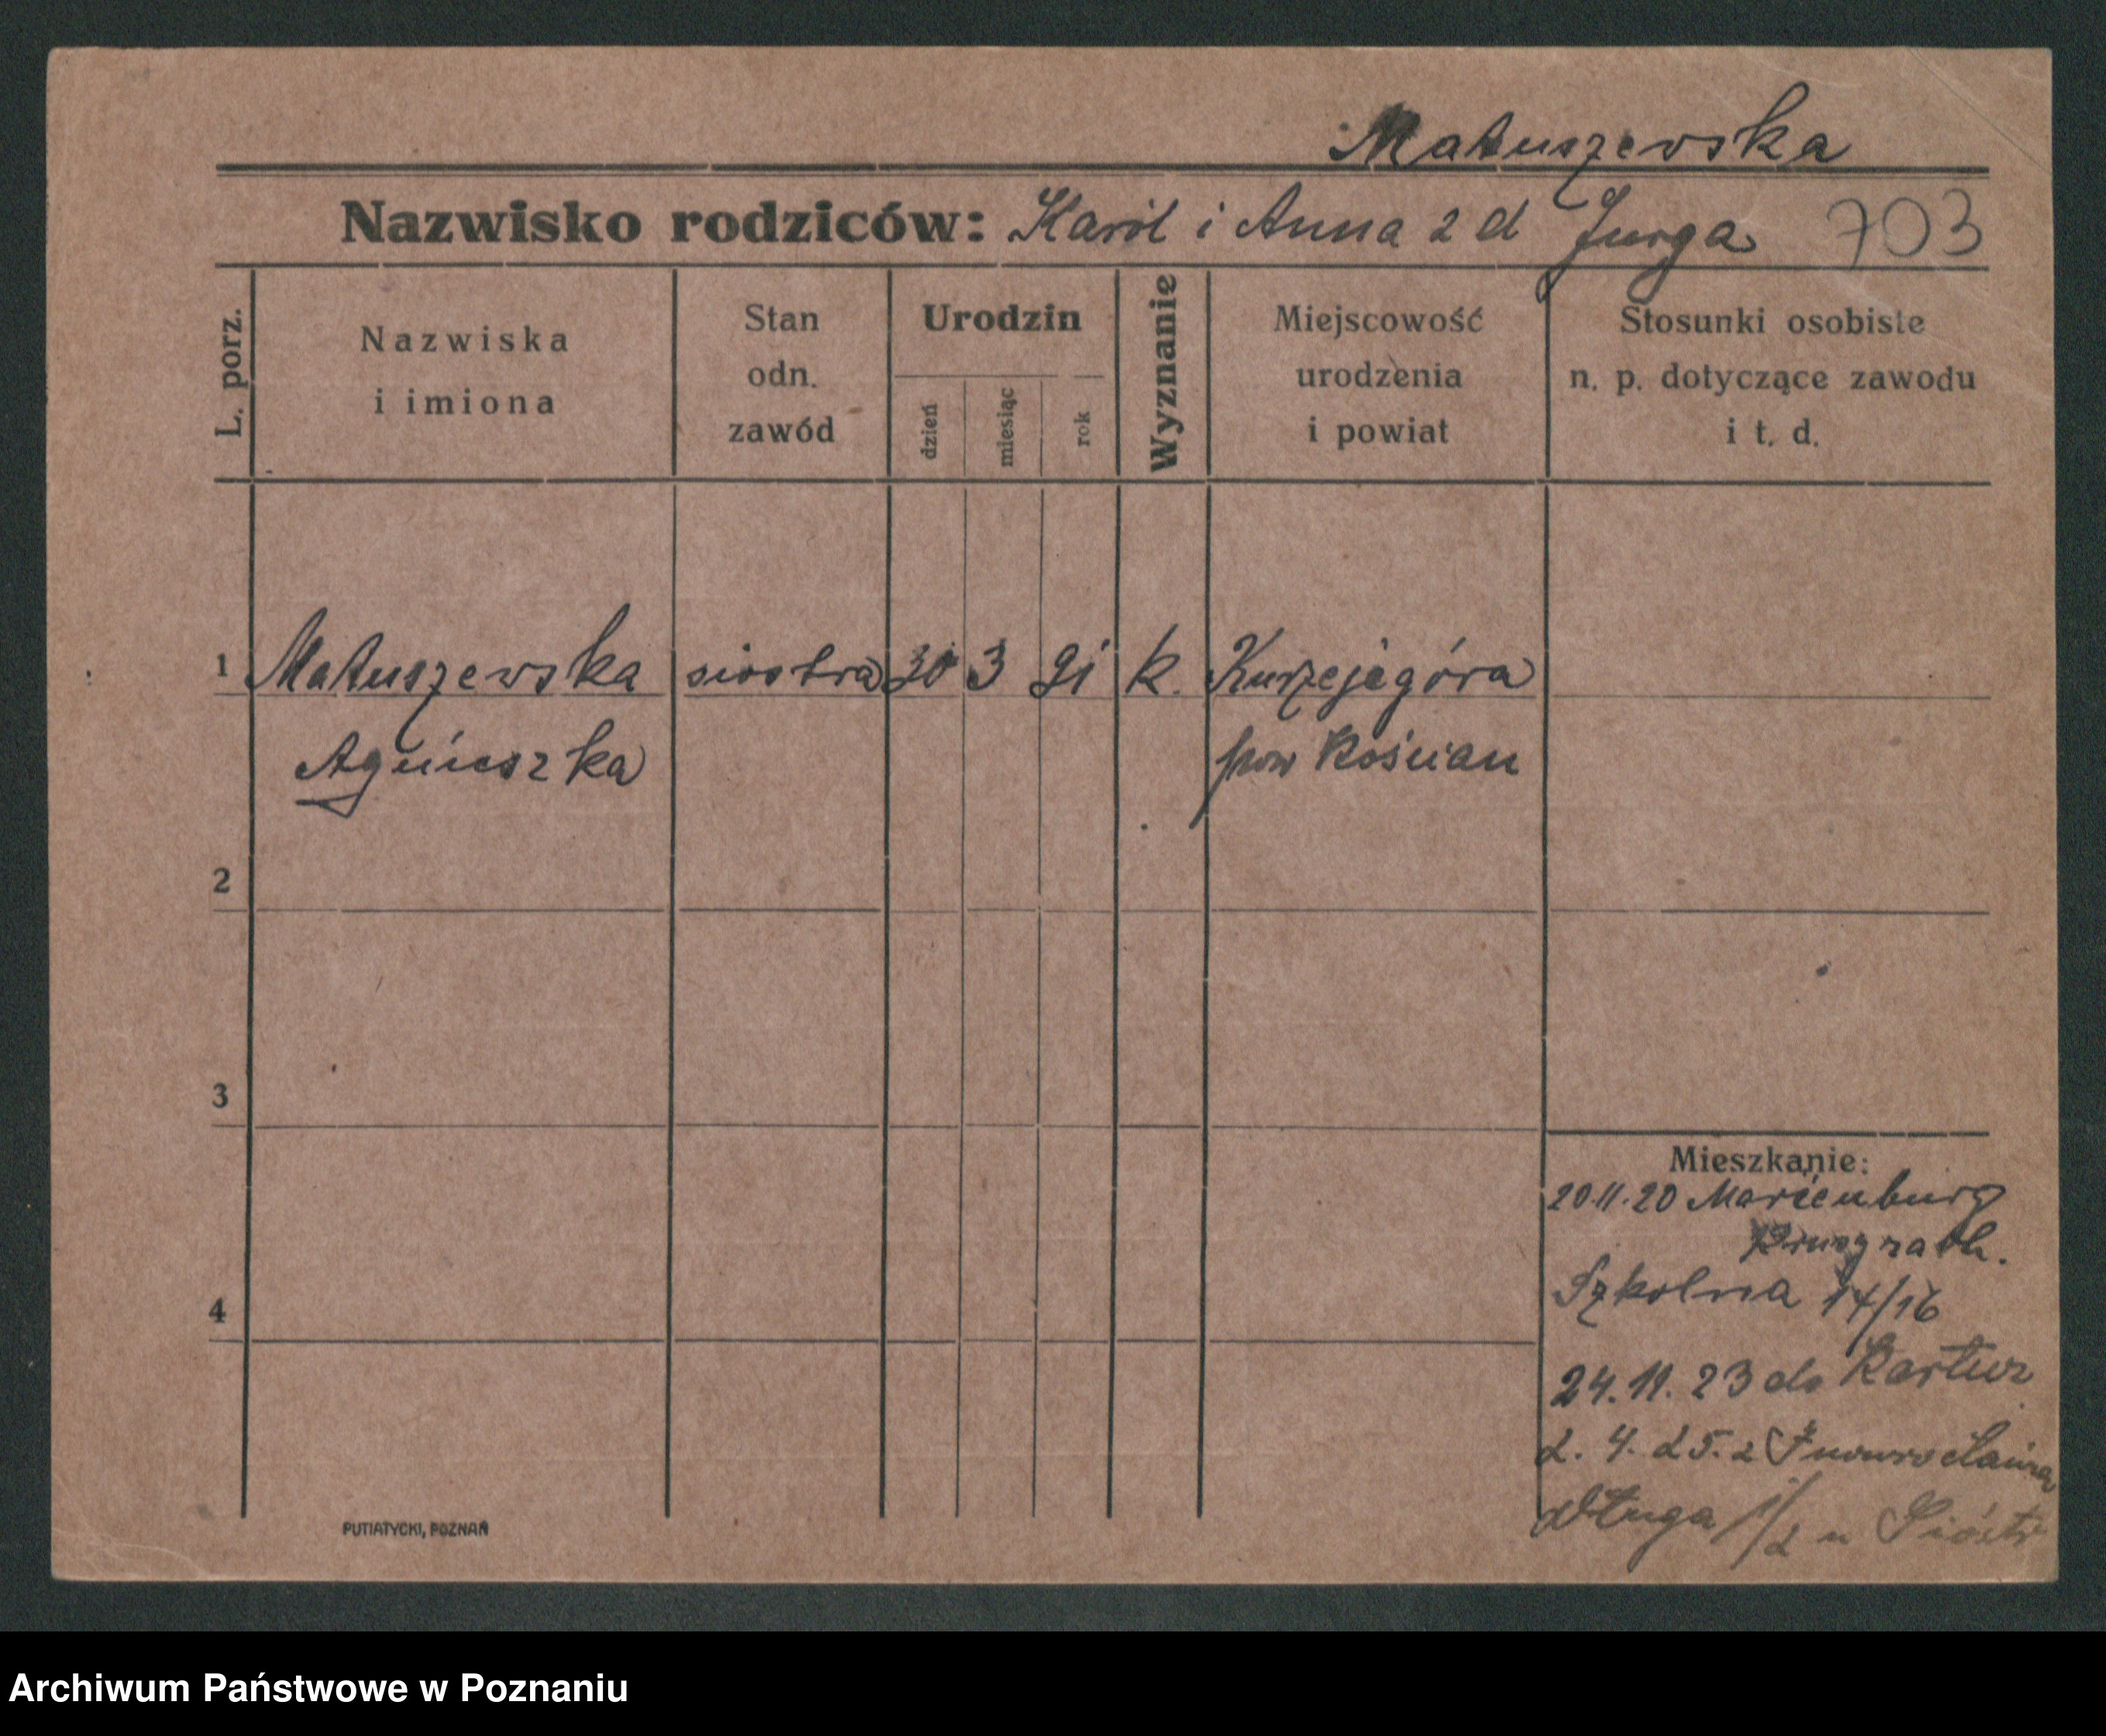 Matuszewska
Nazwisko rodziców: Karól i Anna z d Jurga 703
L. porz.
Nazwiska
i imiona
Stan
odn.
zawód
Urodzin
dzień
miesiąc
rok
Wyznanie
Miejscowość
urodzenia
i powiat
Stosunki osobiste
n. p. dotyczące zawodu
i t. d.
1 Matuszewska siostra 30 3 91 k. Kurzejagóra
Agnieszka pow Kościan
2
3
4
Mieszkanie:
20.11.20 Marienburg
Szkolna 14/16
24.11.23 do Kartuz
2. 4. 25. z Inowrocławia
Długa 1/2 u Sióstr
PUTIATYCKI, POZNAŃ
Archiwum Państwowe w Poznaniu